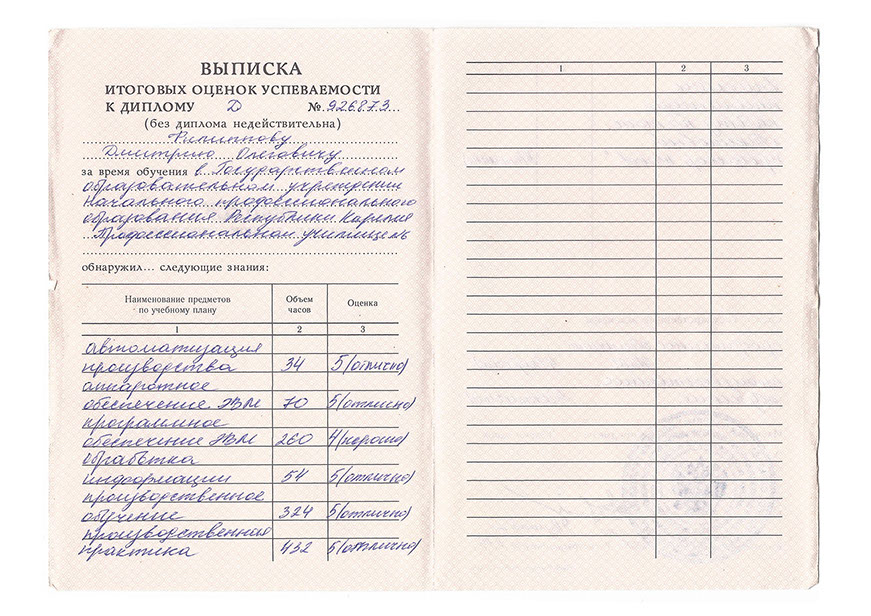 ВЫПИСКА
ИТОГОВЫХ ОЦЕНОК УСПЕВАЕМОСТИ
К ДИПЛОМУ Д № 926873
(без диплома недействительна)
Филиппову
Дмитрию Олеговичу
за время обучения в Государственном
образовательном учреждении
начального профессионального
образования Республики Карелия
Профессиональном училище №
обнаружил... следующие знания:
Наименование предметов по учебному плану Объем часов Оценка
1 2 3
автоматизация
производства 34 5(отлично)
аппаратное
обеспечение ЭВМ 70 5(отлично)
программное
обеспечение ЭВМ 260 4(хорошо)
обработка
информации 54 5(отлично)
производственное
обучение 324 5(отлично)
производственная
практика 432 5(отлично)
1 2 3